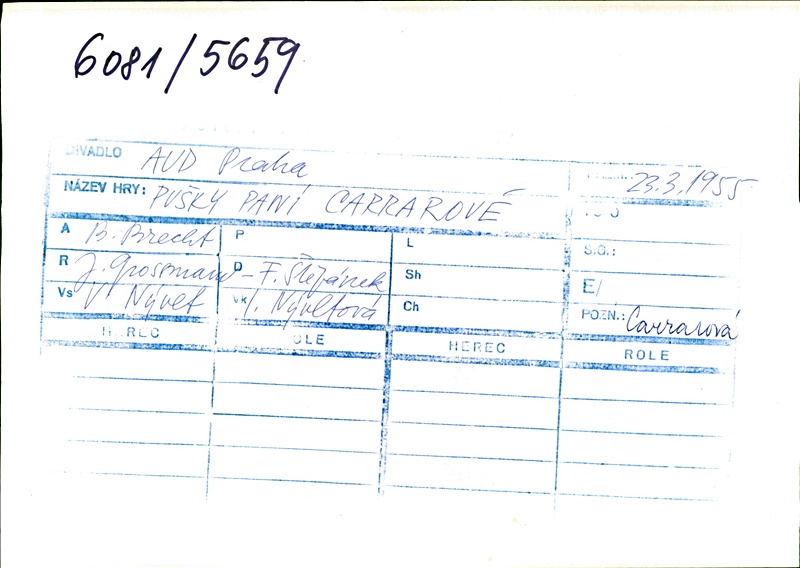 6081/5659
DIVADLO AUD Praha 23.3.1955
NÁZEV HRY: PUŠKY PANÍ CARRAROVÉ
A B. Brecht P L S.G.:
R J. Grossmann D – F. Štěpánek Sh E/
Vs V Nývlt Vk I. Nývltová Ch POZN.: Carrarová
HEREC ROLE HEREC ROLE